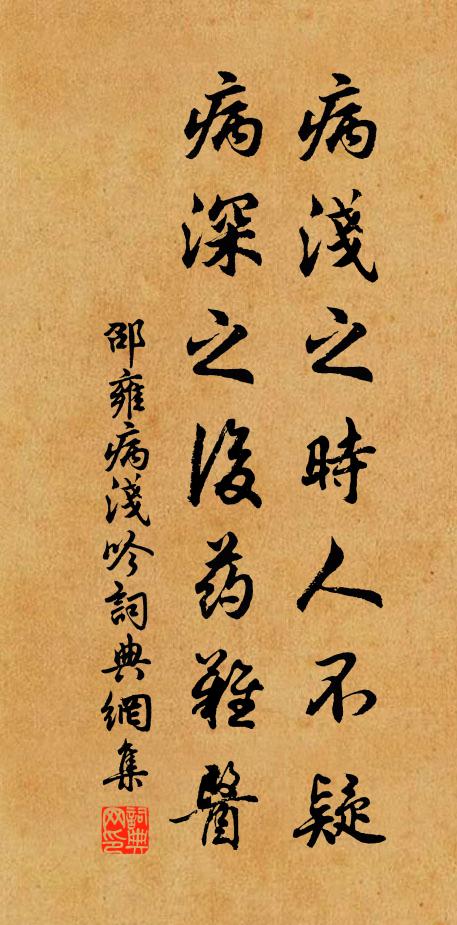 病淺之時人不疑
病深之後药難醫
邵雍病淺吟詞典網集
詞典网印